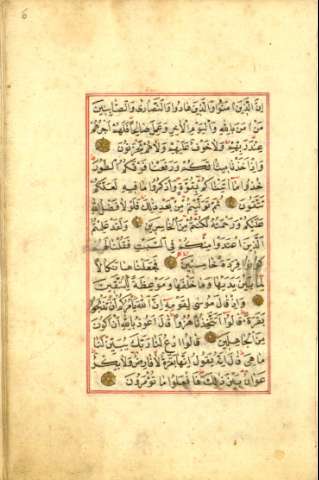 6
اِنَّ الَّذِينَ اٰمَنُوا وَالَّذِينَ هَادُوا وَالنَّصَارٰى وَالصَّابِـِٔينَ
مَنْ اٰمَنَ بِاللّٰهِ وَالْيَوْمِ الْاٰخِرِ وَعَمِلَ صَالِحًا فَلَهُمْ اَجْرُهُمْ
عِنْدَ رَبِّهِمْ وَلَا خَوْفٌ عَلَيْهِمْ وَلَا هُمْ يَحْزَنُونَ
وَاِذْ اَخَذْنَا مِيثَاقَكُمْ وَرَفَعْنَا فَوْقَكُمُ الطُّورَ
خُذُوا مَا اٰتَيْنَاكُمْ بِقُوَّةٍ وَاذْكُرُوا مَا فِيهِ لَعَلَّكُمْ
تَتَّقُونَ ثُمَّ تَوَلَّيْتُمْ مِنْ بَعْدِ ذٰلِكَ فَلَوْلَا فَضْلُ اللّٰهِ
عَلَيْكُمْ وَرَحْمَتُهُ لَكُنْتُمْ مِنَ الْخَاسِرِينَ وَلَقَدْ عَلِمْتُمُ
الَّذِينَ اعْتَدَوْا مِنْكُمْ فِي السَّبْتِ فَقُلْنَا لَهُمْ
كُونُوا قِرَدَةً خَاسِـِٔينَ فَجَعَلْنَاهَا نَكَالًا
لِمَا بَيْنَ يَدَيْهَا وَمَا خَلْفَهَا وَمَوْعِظَةً لِلْمُتَّقِينَ
وَاِذْ قَالَ مُوسٰى لِقَوْمِهِ اِنَّ اللّٰهَ يَأْمُرُكُمْ اَنْ تَذْبَحُوا
بَقَرَةً قَالُوا اَتَتَّخِذُنَا هُزُوًا قَالَ اَعُوذُ بِاللّٰهِ اَنْ اَكُونَ
مِنَ الْجَاهِلِينَ قَالُوا ادْعُ لَنَا رَبَّكَ يُبَيِّنْ لَنَا
مَا هِيَ قَالَ اِنَّهُ يَقُولُ اِنَّهَا بَقَرَةٌ لَا فَارِضٌ وَلَا بِكْرٌ
عَوَانٌ بَيْنَ ذٰلِكَ فَافْعَلُوا مَا تُؤْمَرُونَ